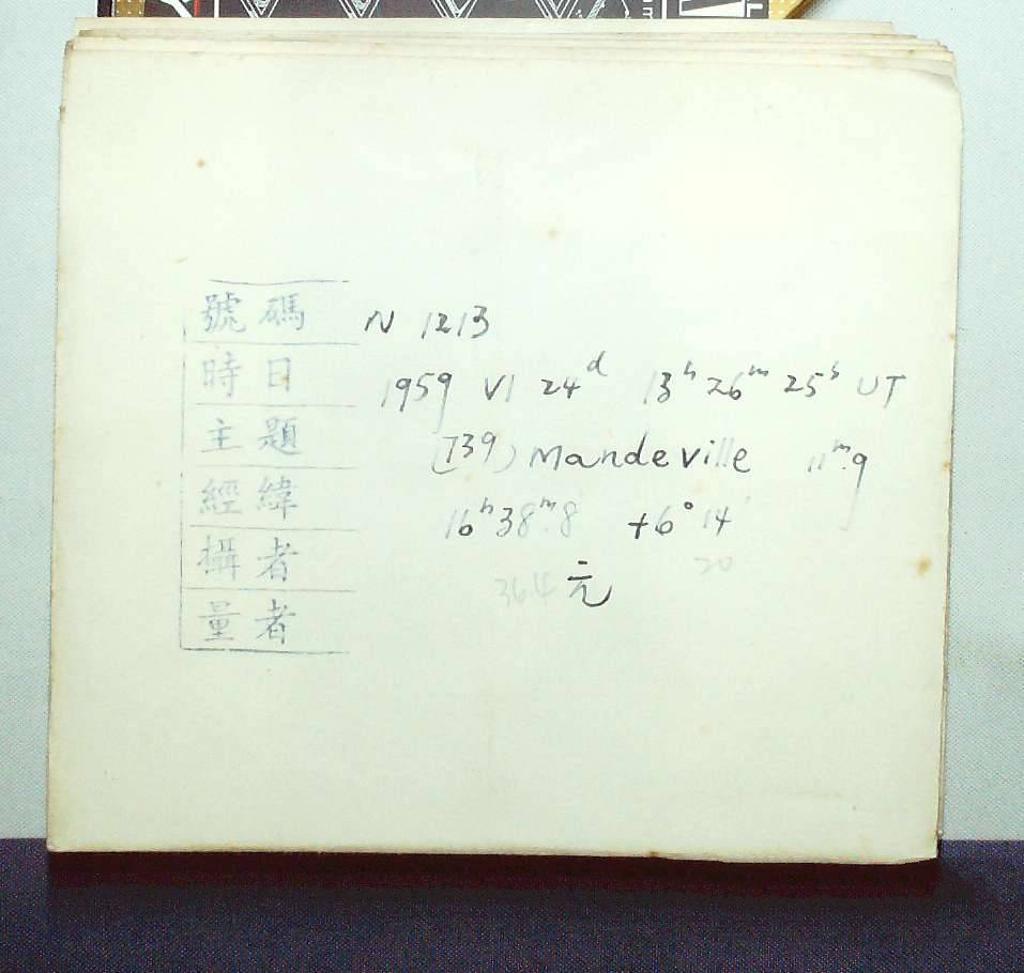 號碼 N 1213
時日 1959 VI 24ᵈ 13ʰ 26ᵐ 25ˢ UT
主題 (739) Mandeville 11ᵐ.9
經緯 16ʰ38ᵐ.8 +6° 14
20
攝者 364 元
量者